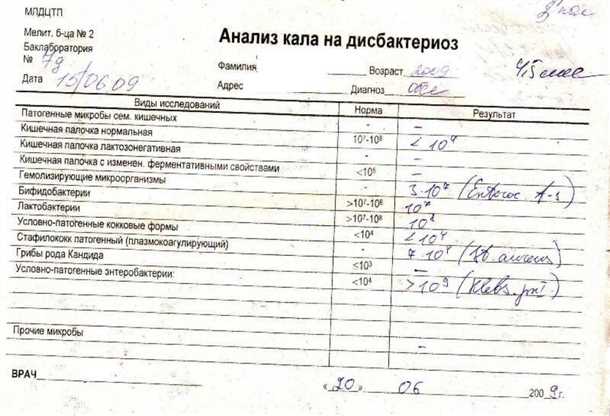 МЛДЦТП
Мелит. б-ца № 2
Баклаборатория
№ 7д
Дата 15/06 09
Анализ кала на дисбактериоз
Фамилия Возраст 2009
Адрес Диагноз
Виды исследований Норма Результат
Патогенные микробы сем. кишечных - -
Кишечная палочка нормальная 10⁷-10⁸ < 10⁴
Кишечная палочка лактозонегативная - -
Кишечная палочка с изменен. ферментативными свойствами <10⁵ -
Гемолизирующие микроорганизмы - 3·10⁷ (Enteroc.
Бифидобактерии >10⁷-10⁸ 10⁷
Лактобактерии >10⁷-10⁸ 10²
Условно-патогенные кокковые формы <10⁴ <10⁴
Стафилококк патогенный (плазмокоагулирующий) - 7·10⁴ (St. aureus)
Грибы рода Кандида <10³ -
Условно-патогенные энтеробактерии: <10⁴ >10⁹ (Klebs.
Прочие микробы
ВРАЧ
«20» 06 2009г.